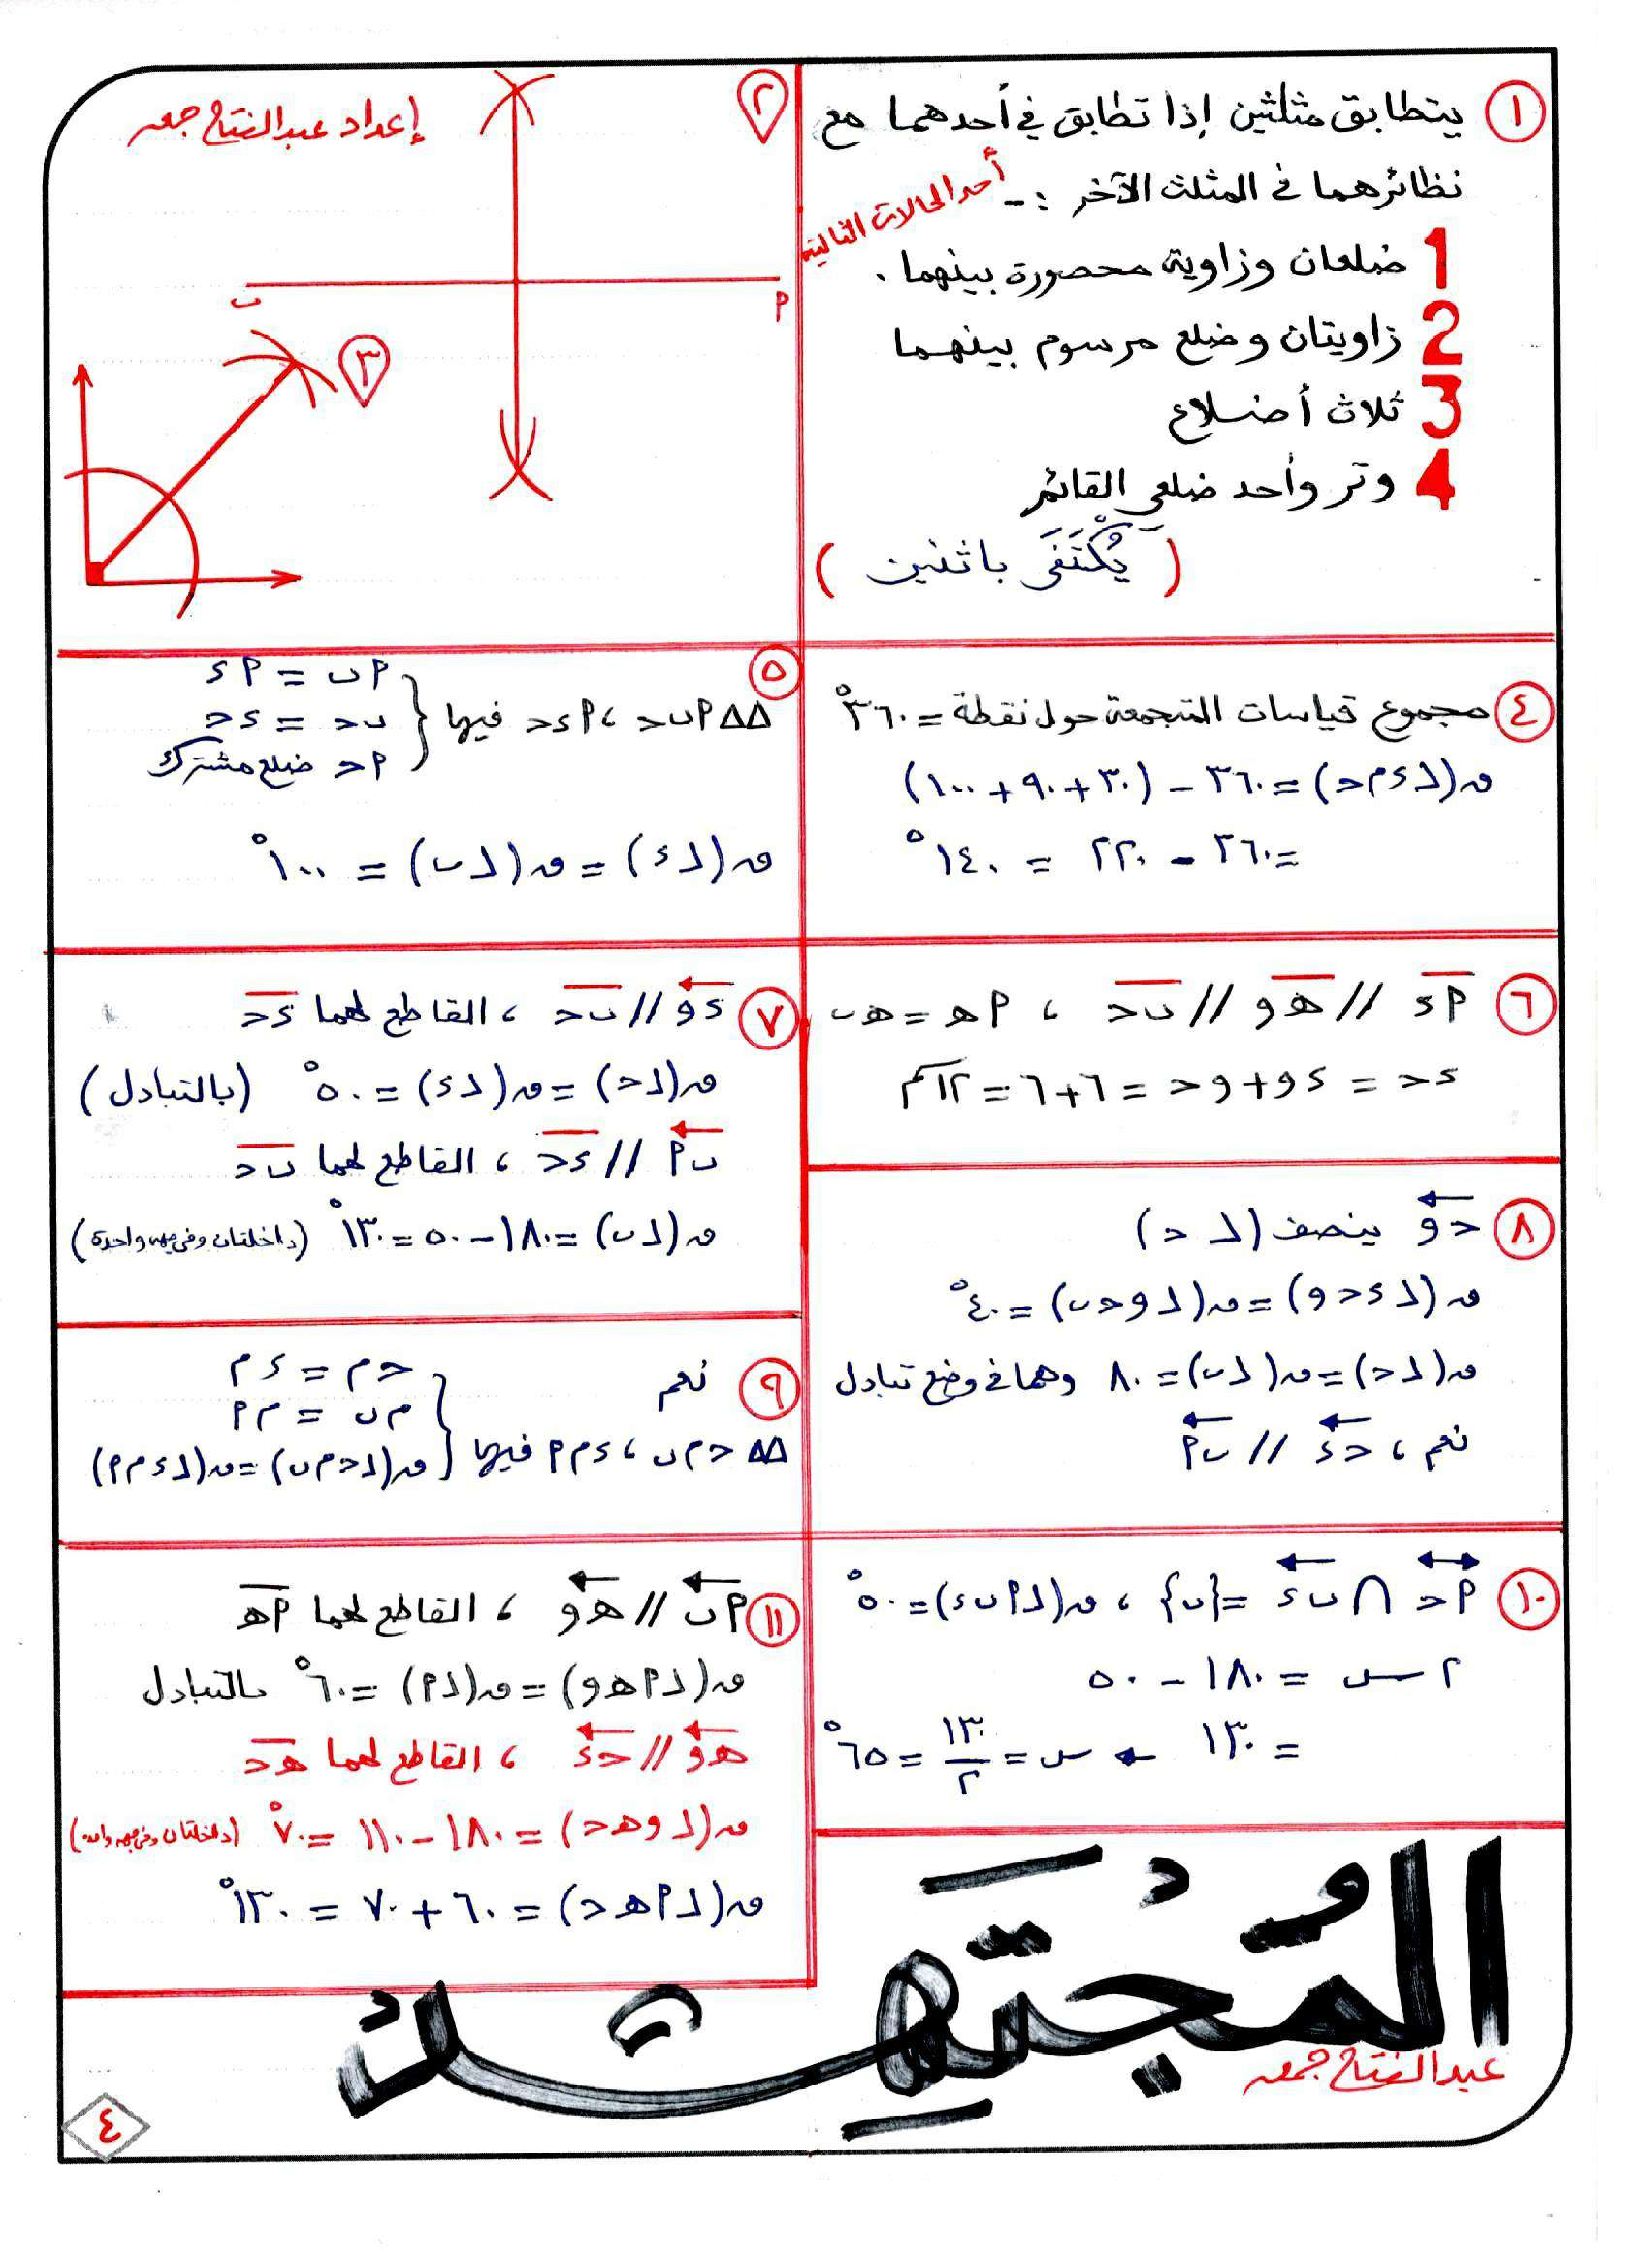 ١ يتطابق مثلثين إذا تطابق في أحدهما مع
نظائرهما في المثلث الآخر :-
أحد الحالات التالية
1 ضلعان وزاوية محصورة بينهما .
2 زاويتان وضلع مرسوم بينهما
3 ثلاث أضلاع
4 وتر وأحد ضلعي القائم
( يُكْتَفَى باثنين )
٢
إعداد عبدالفتاح جمعه
ب
أ
٣
٤ مجموع قياسات المتجمعة حول نقطة = ٣٦٠°
ق(∠ء م ح) = ٣٦٠ - (٣٠ + ٩٠ + ١٠٠)
= ٣٦٠ - ٢٢٠ = ١٤٠°
٥
△△ أ ب ح ، أ ء ح فيهما {
أ ب = أ ء
ب ح = ء ح
أ ح ضلع مشترك
ق(∠ء) = ق(∠ب) = ١٠٠°
٦ أ ء // هـ و // ب ح ، أ هـ = هـ ب
ء ح = ء و + و ح = ٦ + ٦ = ١٢سم
٧ ء و // ب ح ، القاطع لهما ء ح
ق(∠ح) = ق(∠ء) = ٥٠° (بالتبادل)
ب أ // ء ح ، القاطع لهما ب ح
ق(∠ب) = ١٨٠ - ٥٠ = ١٣٠° (داخلتان وفي جهه واحدة)
٨ ح و ينصف (∠ ح)
ق(∠ء ح و) = ق(∠و ح ب) = ٤٠°
ق(∠ح) = ق(∠ب) = ٨٠ وهما في وضع تبادل
نعم ، ح ء // ب أ
٩ نعم
△△ ح م ب ، ء م أ فيهما {
ح م = ء م
م ب = م أ
ق(∠ح م ب) = ق(∠ء م أ)
١٠ أ ح ∩ ب ء = {ب} ، ق(∠أ ب ء) = ٥٠°
٢ س = ١٨٠ - ٥٠
= ١٣٠ ← س = ١٣٠/٢ = ٦٥°
١١ أ ب // هـ و ، القاطع لهما أ هـ
ق(∠أ هـ و) = ق(∠أ) = ٦٠° بالتبادل
هـ و // ح ء ، القاطع لهما هـ ح
ق(∠و هـ ح) = ١٨٠ - ١١٠ = ٧٠° (داخلتان وفي جهه واحده)
ق(∠أ هـ ح) = ٦٠ + ٧٠ = ١٣٠°
المُجْتَهِدُ
عبدالفتاح جمعه
٤